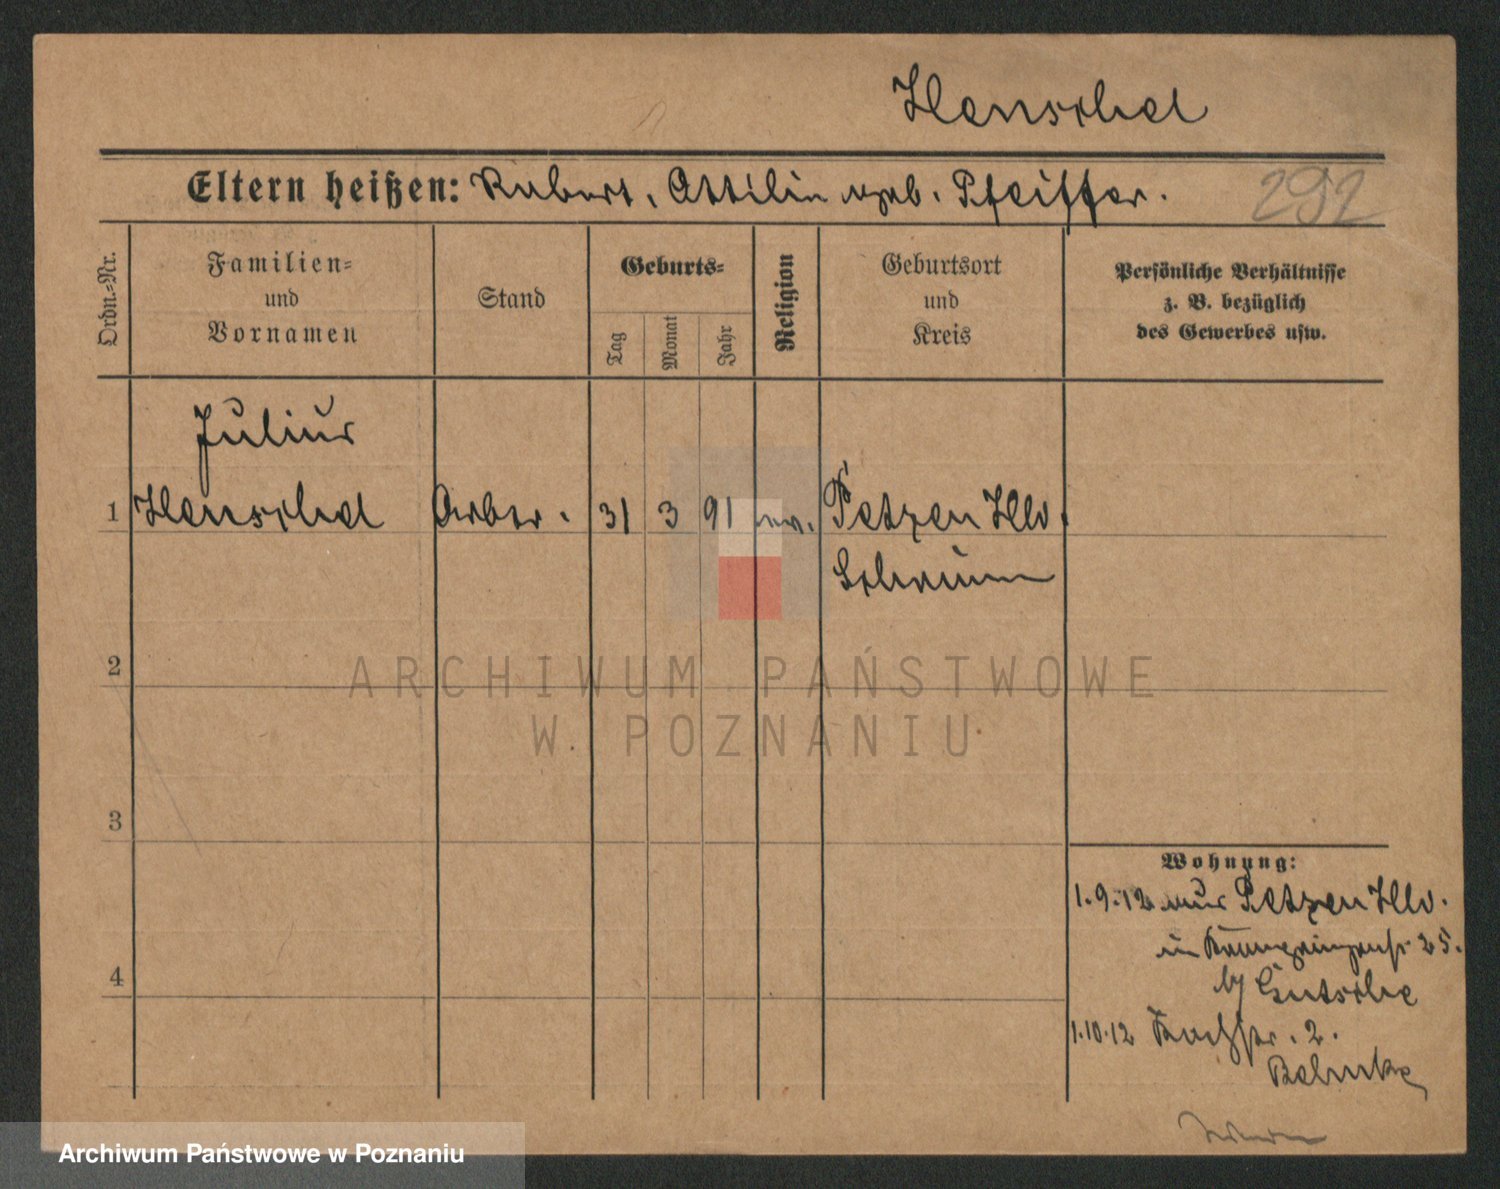 Henschel
Eltern heißen: Robert, Ottilie geb. Pfeiffer.
292
Ordn.-Nr.
Familien-
und
Vornamen
Stand
Geburts-
Tag
Monat
Jahr
Religion
Geburtsort
und
Kreis
Persönliche Verhältnisse
z. B. bezüglich
des Gewerbes usw.
Julius
1 Henschel Arbtr. 31 3 91 ev. Petzen Hld.
Schrimm
2
3
4
Wohnung:
1.9.12 aus Petzen Hld.
in 25.
by Gutsche
1.10.12 2.
Behnke
ARCHIWUM PAŃSTWOWE
W POZNANIU
Archiwum Państwowe w Poznaniu